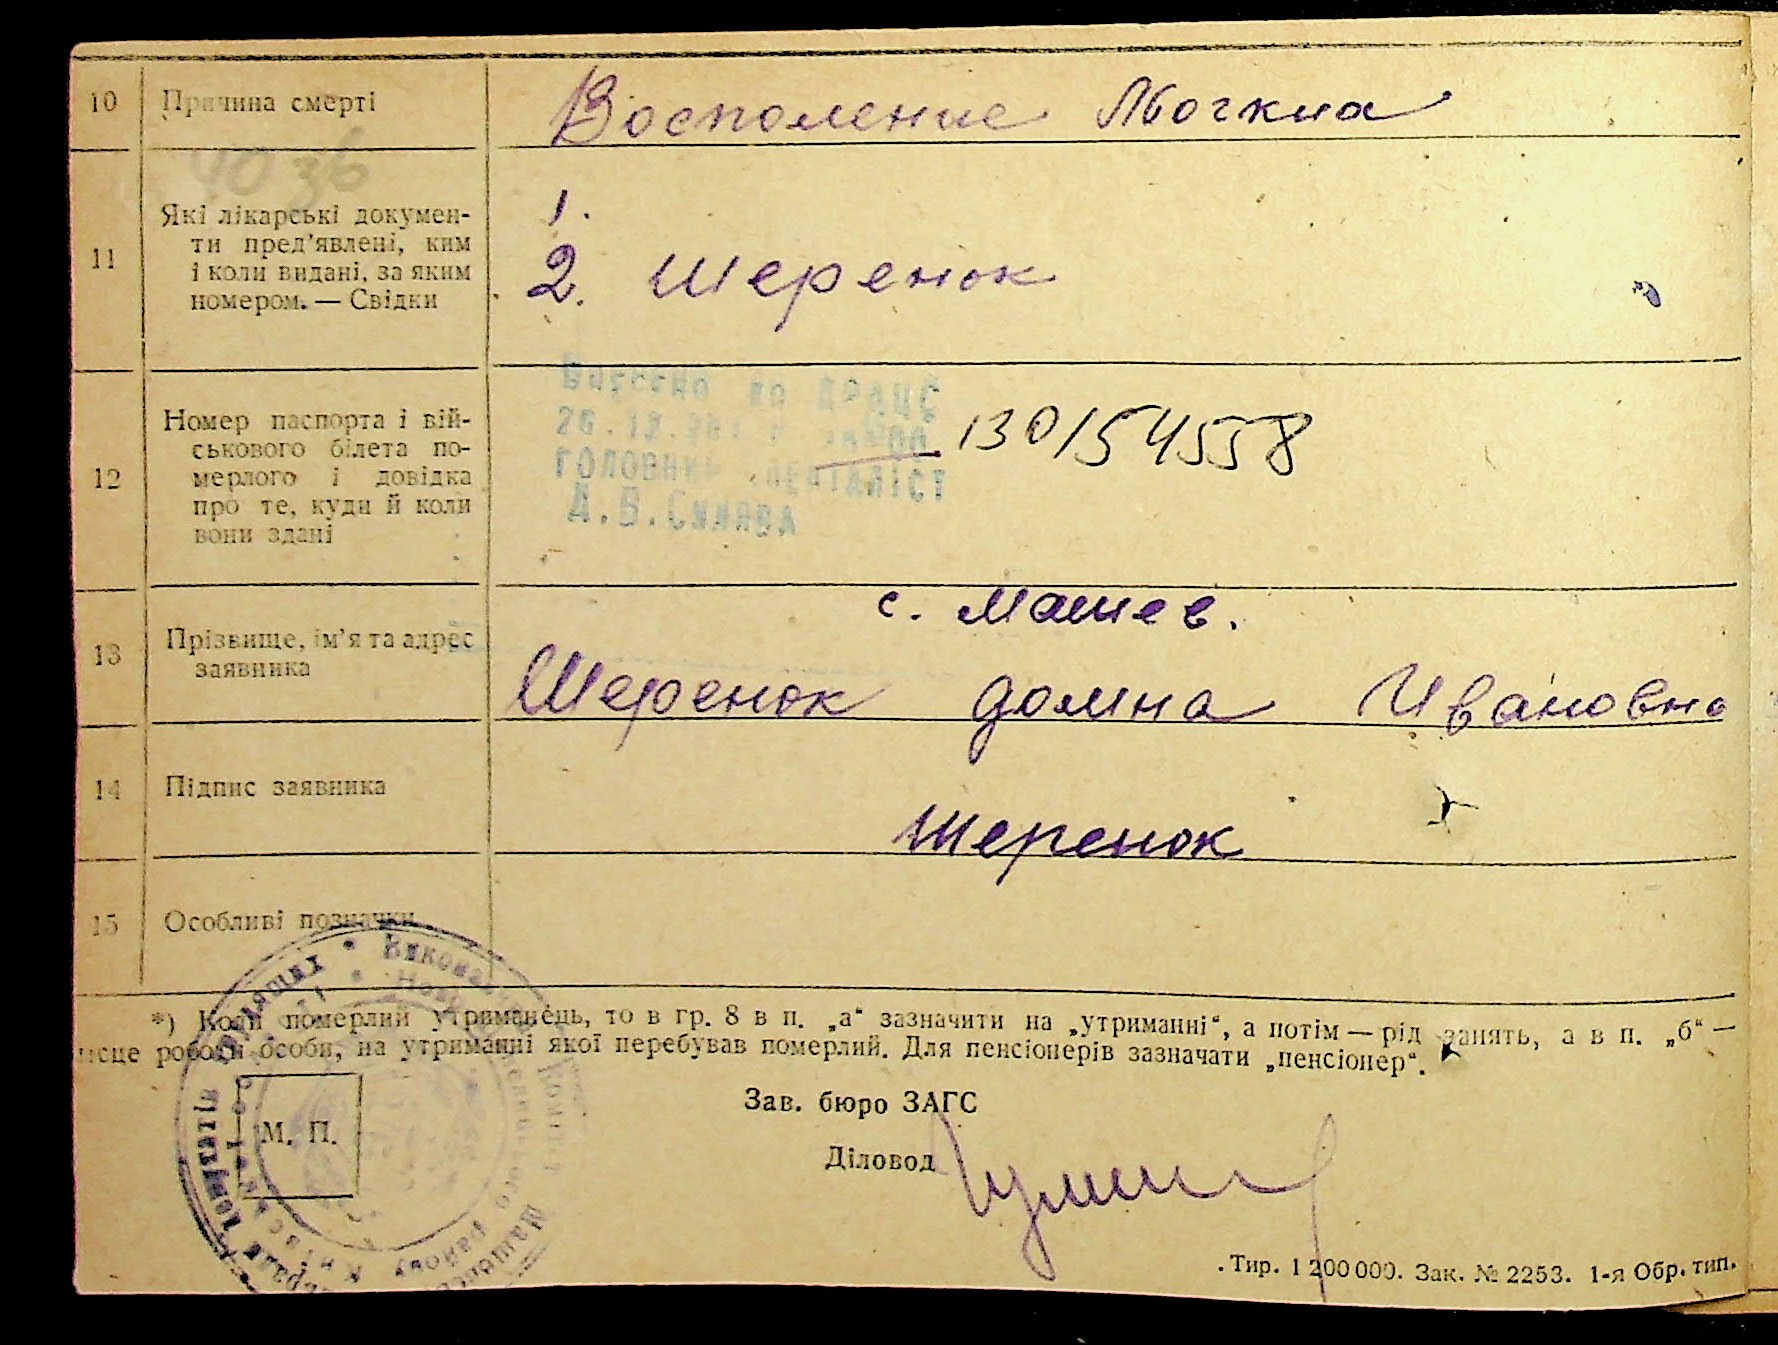 10 Причина смерті Восполение Могкиа
4036
11 Які лікарські докумен-
ти пред'явлені, ким
і коли видані, за яким
номером. — Свідки
1.
2. Шеренок
12 Номер паспорта і вій-
ськового білета по-
мерлого і довідка
про те, куди й коли
вони здані
Внесено до ДРАЦС
130154558
ГОЛОВНИЙ СПЕЦІАЛІСТ
13 Прізвище, ім'я та адрес
заявника
с. Машев.
Шеренок Домна Ивановна
14 Підпис заявника
Шеренок
15 Особливі позначки
*) Коли померлий утриманець, то в гр. 8 в п. „а“ зазначити на „утриманні“, а потім — рід занять, а в п. „б“ —
місце роботи особи, на утриманні якої перебував померлий. Для пенсіонерів зазначати „пенсіонер“.
Зав. бюро ЗАГС
М. П.
Діловод
Тир. 1 200 000. Зак. № 2253. 1-я Обр. тип.